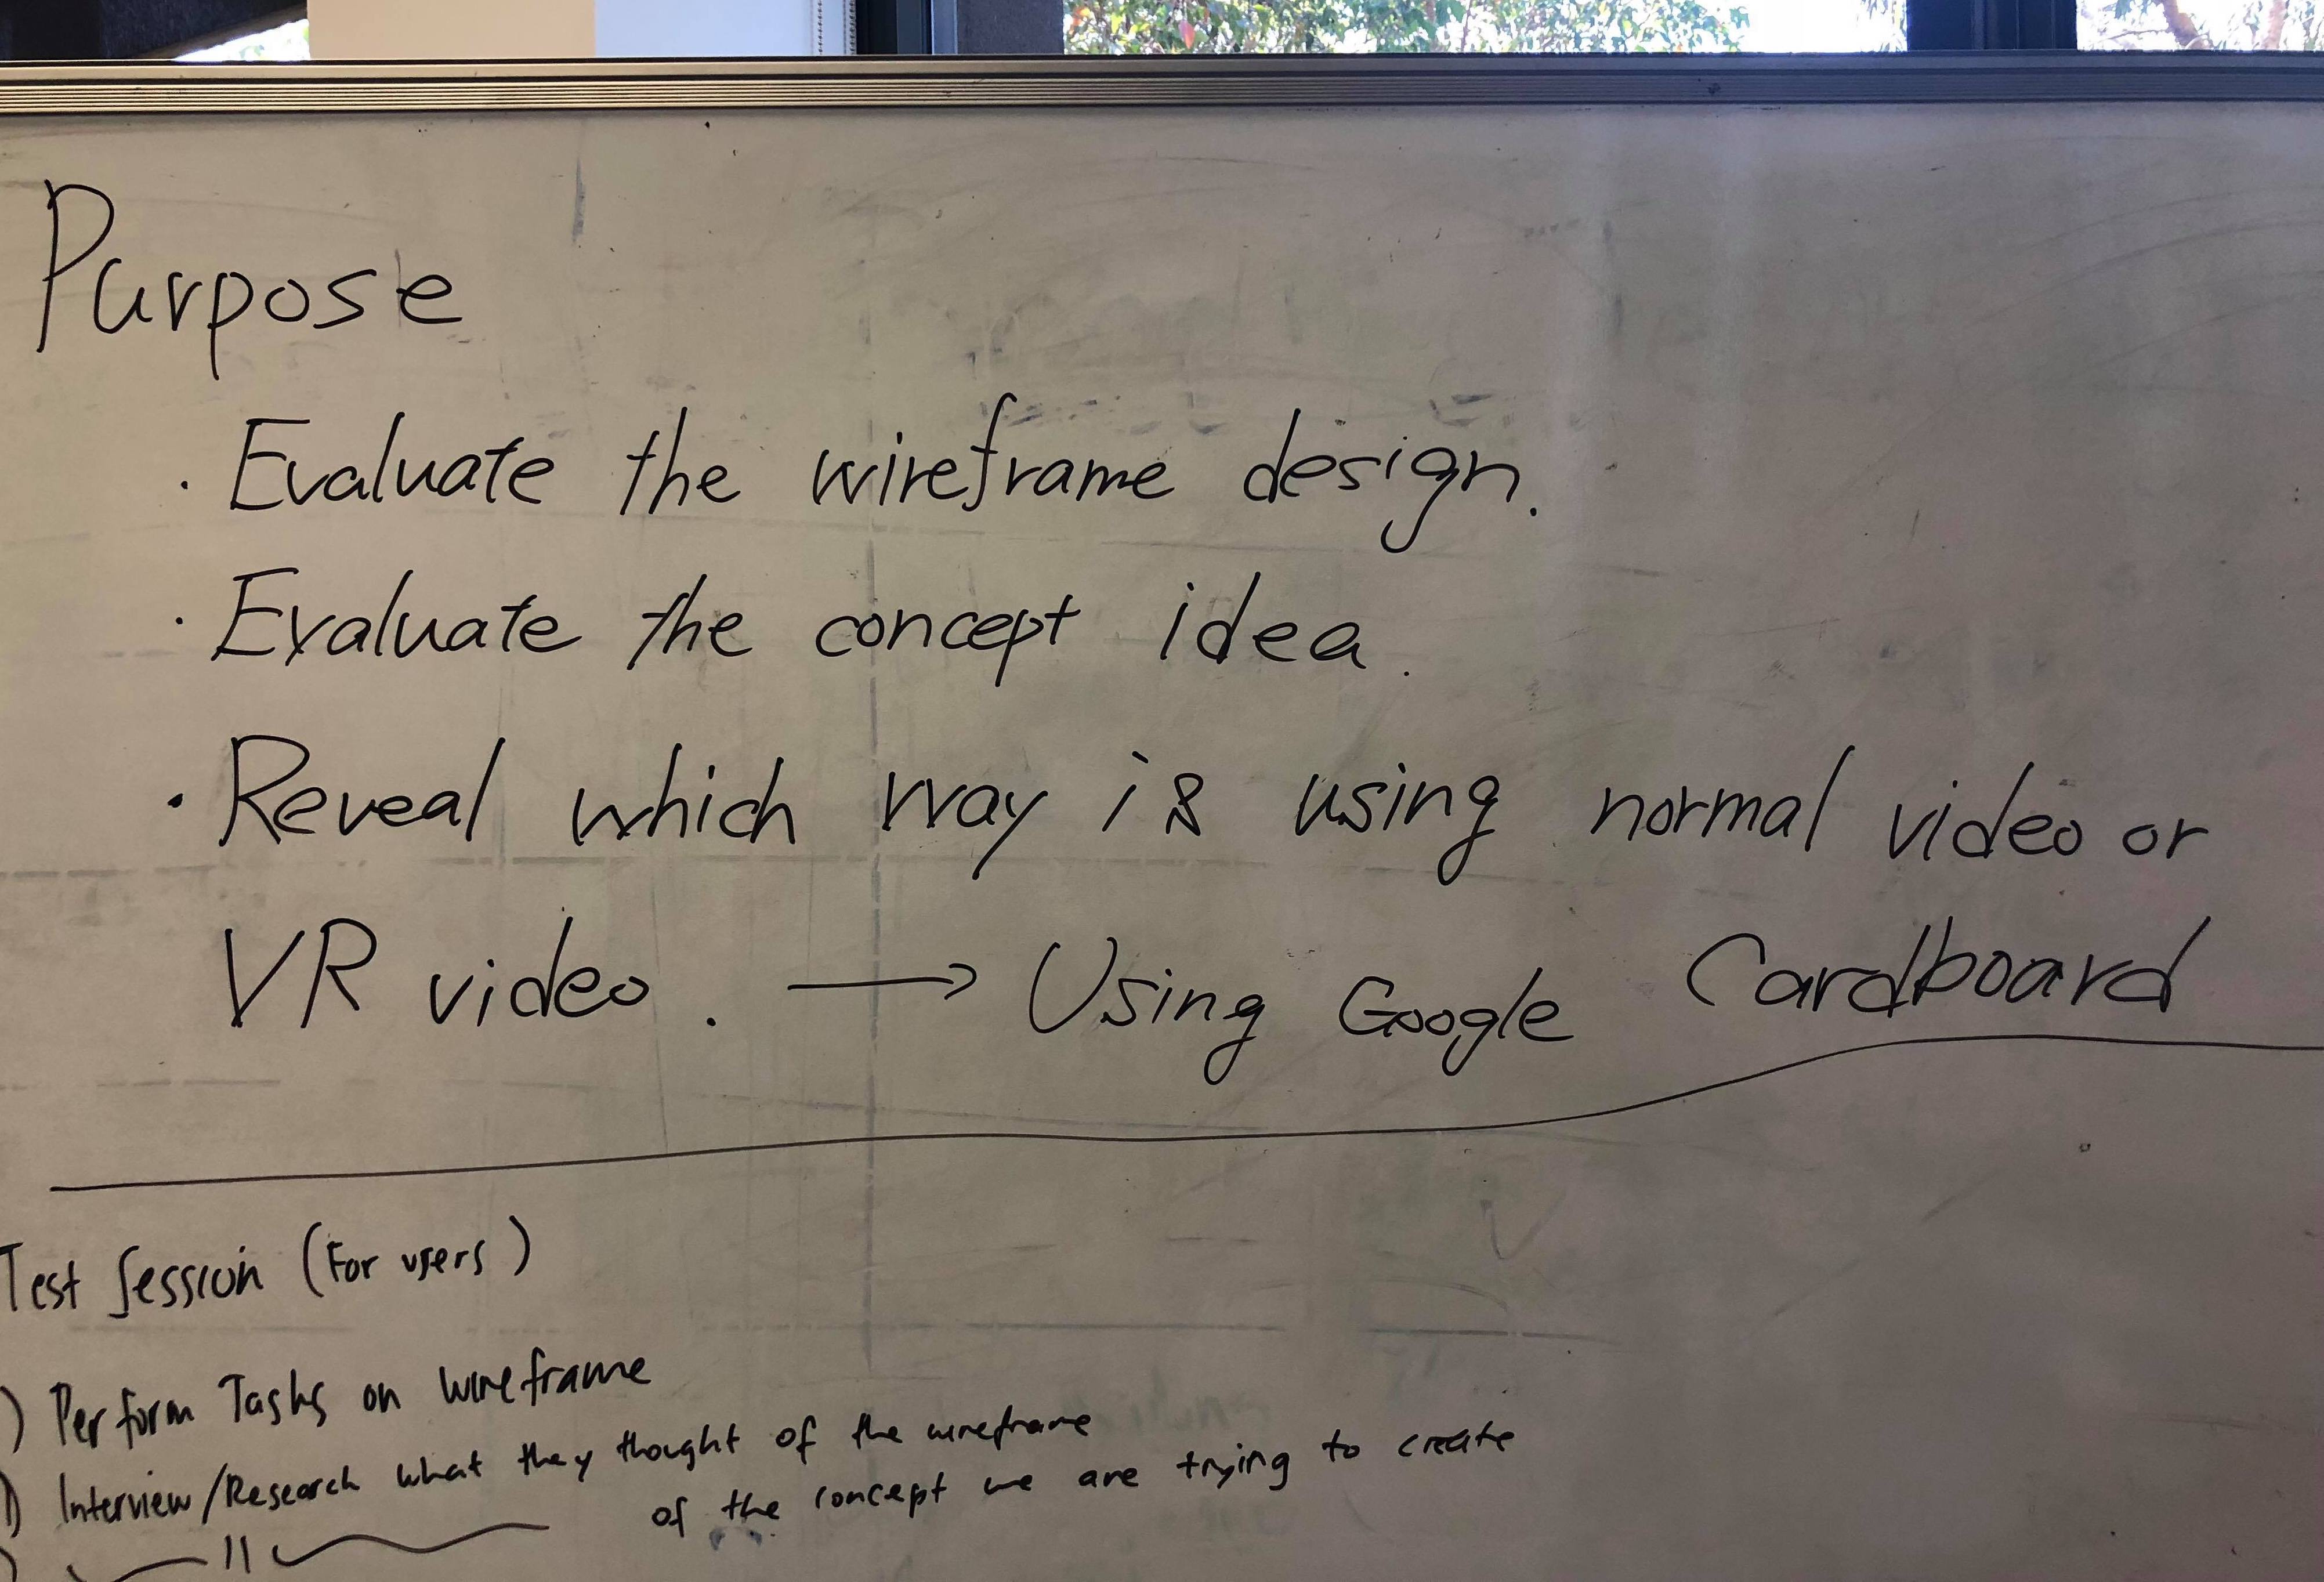 Purpose
· Evaluate the wireframe design.
· Evaluate the concept idea.
· Reveal which way is using normal video or
VR video. → Using Google Cardboard
Test Session (For users)
) Perform Tasks on wireframe
) Interview/Research what they thought of the wireframe
) —11— of the concept we are trying to create